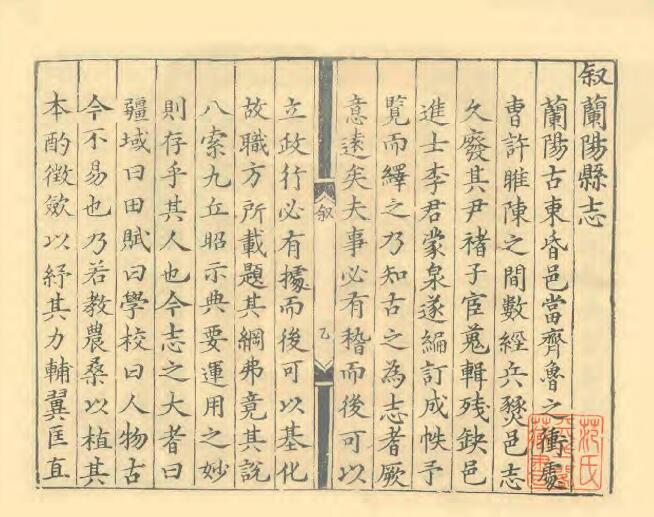 叙蘭陽縣志
蘭陽古東昏邑當齊魯之衝處
曹許睢陳之間數經兵燹邑志
久廢其尹褚子宦蒐輯残缺邑
進士李君蒙泉遂編訂成帙予
覧而繹之乃知古之為志者厥
意遠矣夫事必有稽而後可以
叙
乙
立政行必有據而後可以基化
故職方所載題其綱弗竟其說
八索九丘昭示典要運用之妙
則存乎其人也今志之大者曰
疆域曰田賦曰學校曰人物古
今不易也乃若教農桑以植其
本酌徵斂以紓其力輔翼匡直
范氏
藏書